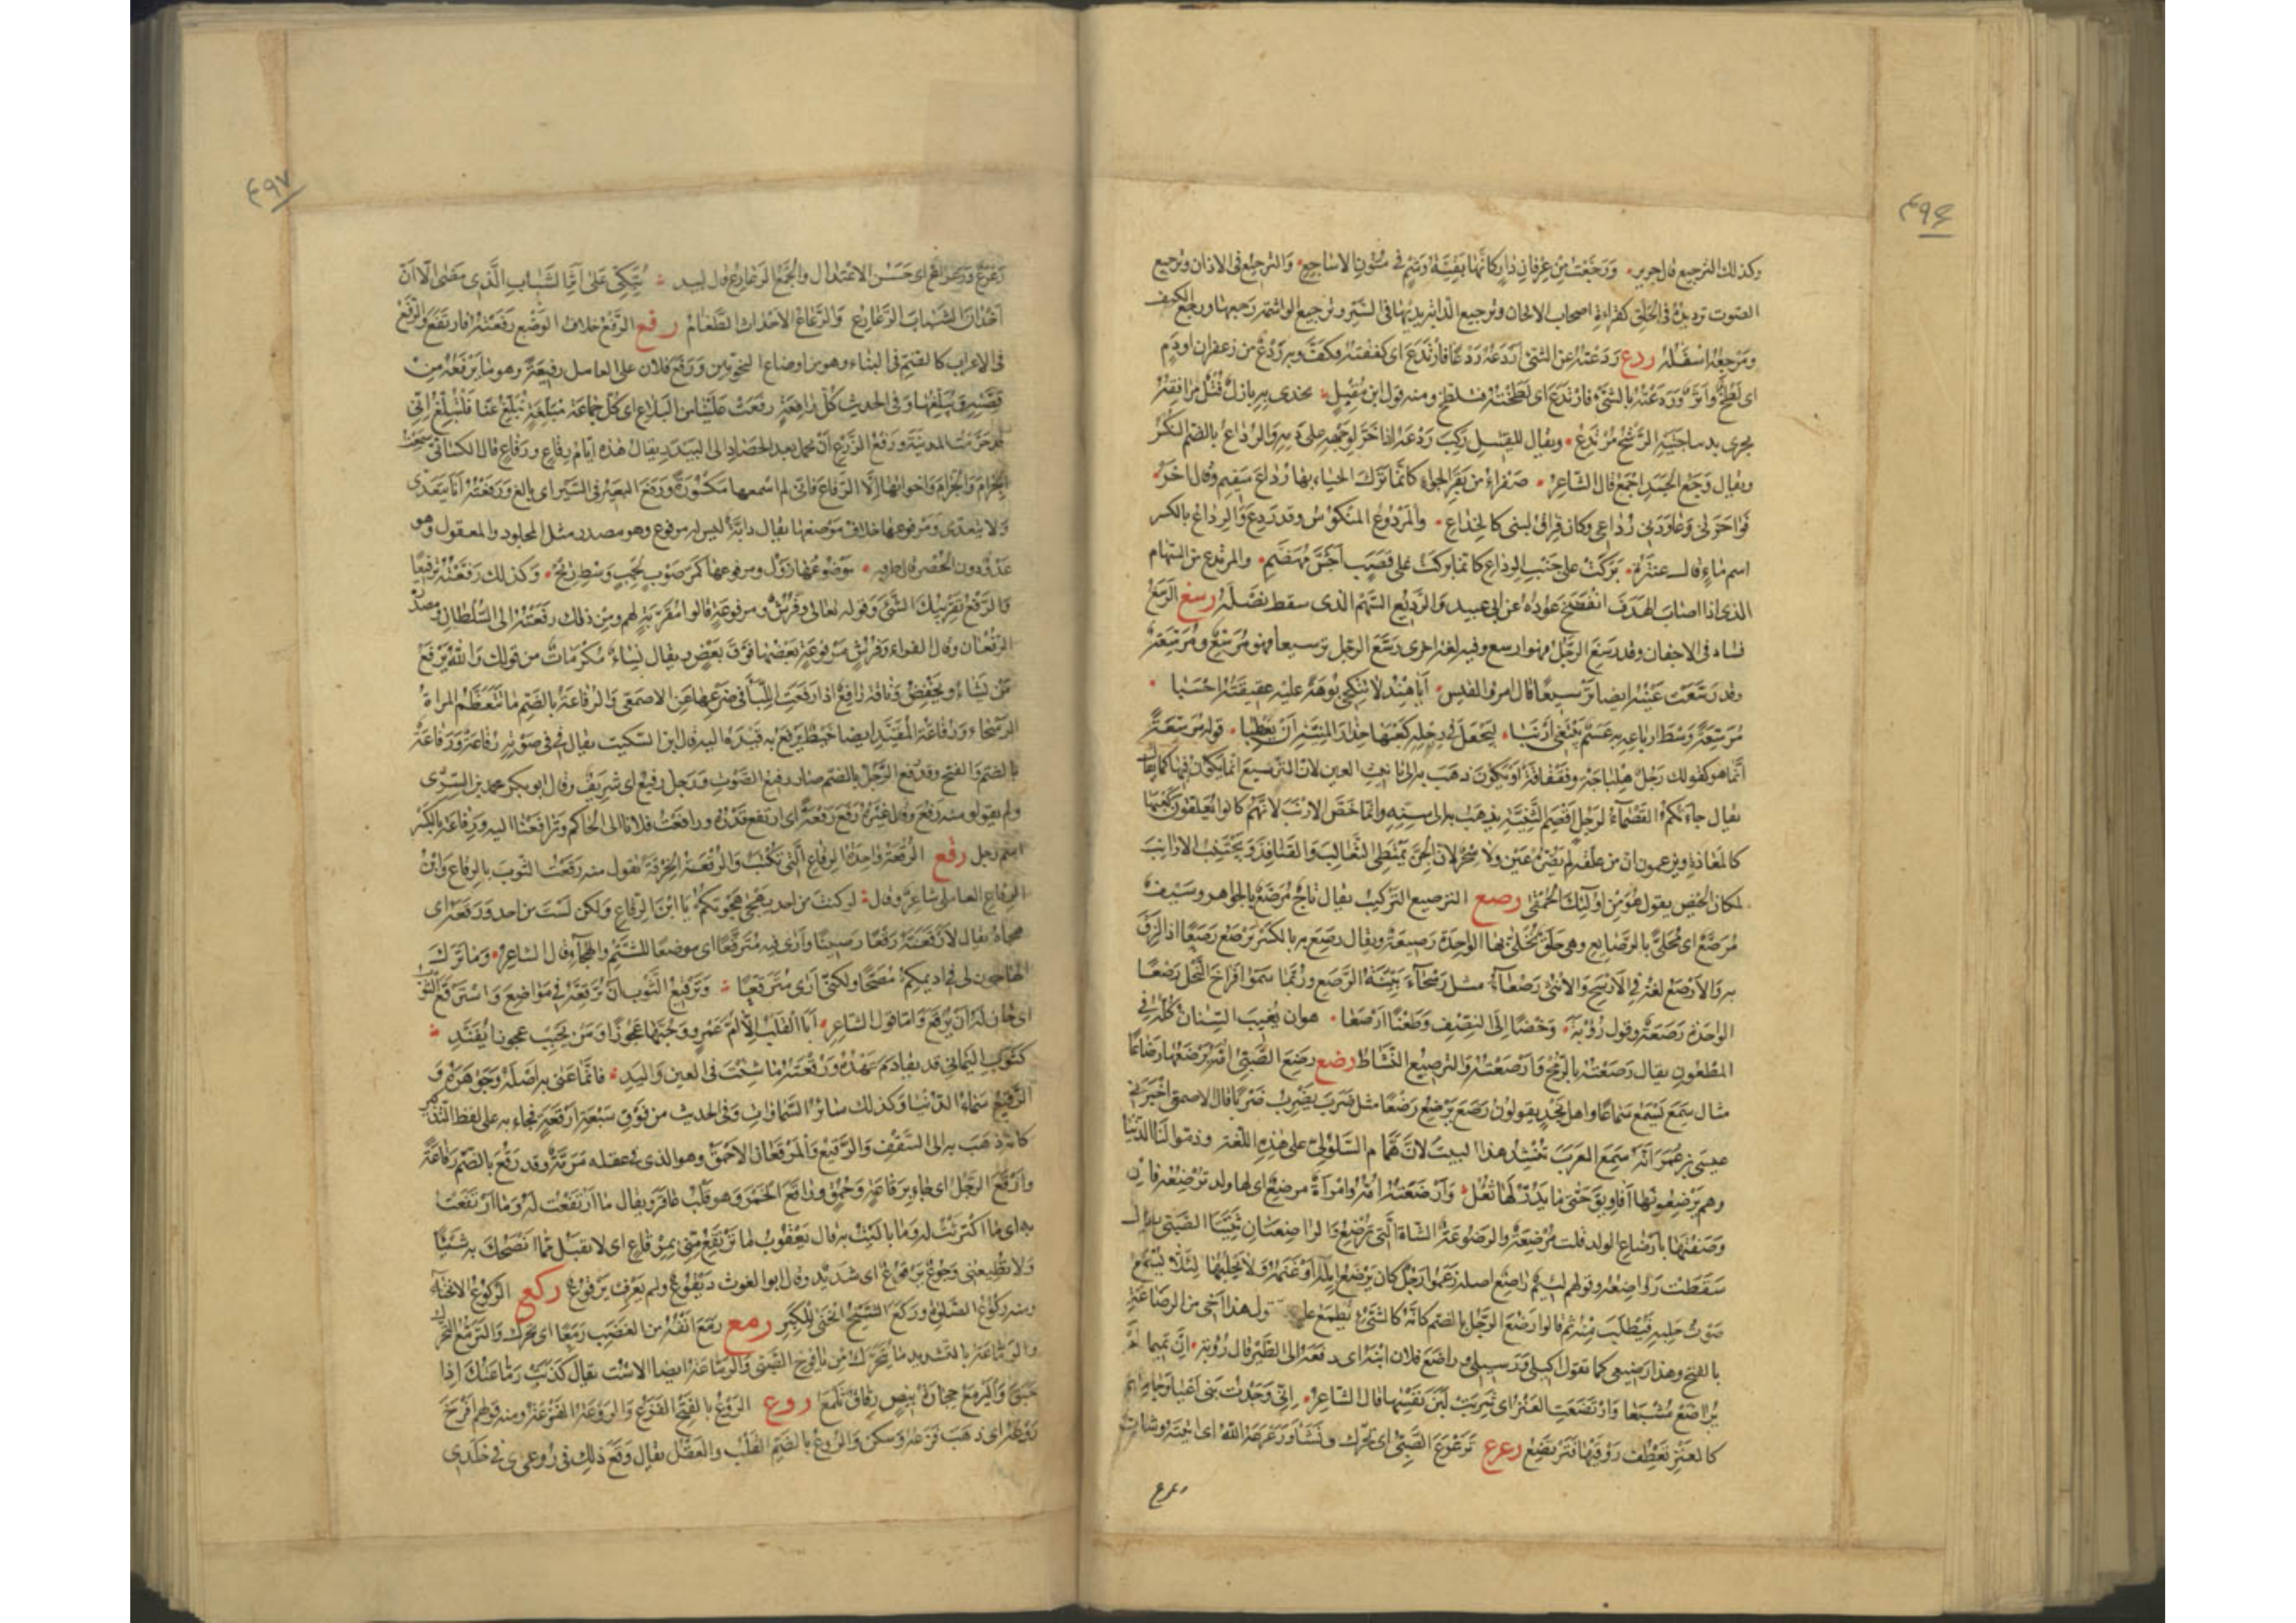 ٤٩٦
وكذلك الترجيع قال جرير وَرَجَّعَتْ مِن عِرْفانِ دارٍ كأنّها بَقِيّةُ وَشْمٍ في مُتونِ الاشاجع والترجيع في الاذان وترجيع
الصوت ترديده في الحلق كقراءة اصحاب الالحان وترجيع الدابة يديها في السير وترجيع الواشمة رجعها ورجع الكتف
ومرجعها اسفله ردع رَدَعْتُه عن الشئ اَرْدَعُه رَدْعًا فارتدع اى كففته فكفّ وبه رَدْعٌ من زعفران او دم
اى لطخٌ وأثرٌ ورَدَعْتُه بالشئ فارتدع اى لطخته فتلطخ ومنه قول ابن مقبل يخدى بها بازل فُتْلٌ مرافقه
يجرى بديباجتيه الرشح مرتدع ويقال للقتيل ركب ردعه اذا خرّ لوجهه على دمه والرُداع بالضم النكس
ويقال وجع الجسد اجمع قال الشاعر صفراء من بقر الجواء كانما ترك الحياء بها رُداع سقيم وقال اخر
فواحزنى وعاودنى رُداعى وكان فراق لبنى كالخداع والمردوع المنكوس وقد رُدِع والرِداع بالكسر
اسم ماء قال عنترة بركت على جنب الرداع كانما بركت على قصب اجش مهضم والمرتدع من السهام
الذى اذا اصاب الهدف انفضخ عوده عن ابى عبيد والرديع السهم الذى سقط نصله رسع الرَسَعُ
فساد فى الاجفان وقد رسع الرجل فهو ارسع وفيه لغة اخرى رسّع الرجل ترسيعا فهو مُرَسِّع ومُرَسِّعة
وقد رسّعت عينه ايضا ترسيعا قال امرؤ القيس أيا هند لا تنكحى بوهة عليه عقيقته احسبا
مُرَسِّعة وسط ارباعه به عسم يبتغى ارنبا ليجعل فى رجله كعبها حذار المنية ان يعطبا قوله مرسّعة
انما هو كقولك رجل هلباجة وفقفاقة او يكون ذهب به الى تانيث العين لان الترسيع انما يكون فيها كما يقال
يقال جاءتكم القصماء لرجل اقصم الثنية يذهب به الى سنه وانما خص الارنب لانهم كانوا يعلقون كعبها
كالمعاذة ويزعمون ان من علقه لم يضره عين ولا سحر لان الجن تمتطى الثعالب والقنافذ وتجتنب الارانب
لمكان الحيض يقول هو من اولئك الحمقى رصع الترصيع التركيب يقال تاج مرصّع بالجواهر وسيف
مرصّع اى محلّى بالرصائع وهى حلق يحلى بها الواحدة رصيعة ويقال رصع به بالكسر يرصع رصعا اذا لزق
به والارصع لغة فى الارسح والانثى رصعاء مثل رسحاء بينة الرصع وربما سموا فراخ النحل رصعا
الواحدة رصعة وقول رؤبة وخضًا الى النصف وطعنا ارصعا هو ان يغيب السنان كله فى
المطعون يقال رصعته بالرمح وارصعته والترصيع النشاط رضع رضع الصبى امه يرضعها رضاعا
مثال سمع يسمع سماعا واهل نجد يقولون رضع يرضع رضعا مثل ضرب يضرب ضربا قال الاصمعى اخبرنى
عيسى بن عمر انه سمع العرب تنشد هذا البيت لابن همام السلولى على هذه اللغة وذموا لنا الدنيا
وهم يرضعونها افاويق حتى ما يدر لها ثعل وارضعته امه وامراة مرضع اى لها ولد ترضعه فان
وصفتها بارضاع الولد قلت مرضعة والرضوعة الشاة التى ترضع والراضعتان ثنيتا الصبى
سقطت رواضعه وقولهم لئيم راضع اصله زعموا رجل كان يرضع ابله او غنمه ولا يحلبها لئلا يسمع
صوت حلبه فيطلب منه ثم قالوا رضع الرجل بالضم كانه كالشئ يطبع عليه تقول هذا اخى من الرضاعة
بالفتح وهذا رضيعى كما تقول اكيلى ورسيلى وراضع فلان ابنه اى دفعه الى الظئر قال رؤبة ان تميما لم
يراضع مسبعا وارتضعت العنز اى شربت لبن نفسها قال الشاعر انى وجدت بنى اعيا وجاملهم
كالعنز تعطف روقيها فترتضع رعرع ترعرع الصبى اى تحرك ونشأ ورعرعه الله اى انبته وشاب
رعرع
٤٩٧
رعرع ورعراع اى حسن الاعتدال والجمع الرعارع قال لبيد تبكى على اثر الشباب الذى مضى الا ان
اخدان الشباب الرعارع والرعاع الاحداث الطغام رفع الرفع خلاف الوضع رفعته فارتفع والرفع
فى الاعراب كالضم فى البناء وهو من اوضاع النحويين ورفع فلان على العامل رفيعة وهو ما يرفعه من
قصته ويبلغها وفى الحديث كل رافعة رفعت علينا من البلاغ اى كل جماعة مبلغة تبلغ عنا فلتبلغ انى
قد حرمت المدينة ورفع الزرع ان يحمل بعد الحصاد الى البيدر يقال هذه ايام رَفاع ورِفاع قال الكسائى سمعت
الجرام والجرام واخواتها الا الرفاع فانى لم اسمعها مكسورة ورفع البعير فى السير اى بالغ ورفعته انا يتعدى
ولا يتعدى ومرفوعها خلاف موضوعها يقال دابة ليس له مرفوع وهو مصدر مثل المجلود والمعقول وهو
عدو دون الحضر قال طرفة موضوعها زول ومرفوعها كمر صوب لجب وسط ريح وكذلك رفعته ترفيعا
والرفع تقريبك الشئ وقوله تعالى وفرش مرفوعة قالوا مقربة لهم ومن ذلك رفعته الى السلطان ومصدره
الرفعان وقال الفراء وفرش مرفوعة بعضها فوق بعض ويقال نساء مكرمات من قولك والله يرفع
من يشاء ويخفض وناقة رافع اذا رفعت اللبأ فى ضرعها عن الاصمعى والرفاعة بالضم ما تتعظم المراة
الرسحاء ورفاعة المقيد ايضا خيط يرفع به قيده اليه قال ابن السكيت يقال فى صوته رُفاعة ورَفاعة
بالضم والفتح وقد رفع الرجل بالضم صار رفيع الصوت ورجل رفيع اى شريف وقال ابو بكر محمد بن السرى
ولم يقولوا منه رفع وقال غيره رفع رفعة اى ارتفع قدره ورافعت فلانا الى الحاكم وترافعنا اليه ورفاعة بالكسر
اسم رجل رقع الرقعة واحدة الرقاع التى تكتب والرقعة الخرقة تقول منه رقعت الثوب بالرقاع وابن
الرقاع العاملى شاعر وقال لو كنت من احد يهجى هجوتكم يا ابن الرقاع ولكن لست من احد ورقعه اى
هجاه يقال لارقعنه رقعا رصينا وارى فيه مترقعا اى موضعا للشتم والهجاء قال الشاعر وما ترك
الهاجون لى فى اديمكم مصحا ولكنى ارى مترقعا وترقيع الثوب ان ترقعه فى مواضع واسترقع الثوب
اى حان له ان يرقع واما قول الشاعر ابى القلب الا ام عمرو وحبها عجوزا ومن يحبب عجوزا يفند
كثوب اليمانى قد تقادم عهده ورقعته ما شئت فى العين واليد فانما عنى به اصله وجوهره و
الرقيع سماء الدنيا وكذلك سائر السماوات وفى الحديث من فوق سبعة ارقعة فجاء به على لفظ التذكير
كانه ذهب به الى السقف والرقيع والمرقعان الاحمق وهو الذى فى عقله مرمة وقد رقع بالضم رقاعة
وارقع الرجل اى جاء برقاعة وحمق وراقع الخمر وهو قلب عاقر ويقال ما ارتقعت له وما ارتقعت
به اى ما اكترثت له وما باليت به قال يعقوب ما ترتقع منى برقاع اى لا تقبل مما انصحك به شيئا
ولا تطيعنى وجوع يرقوع اى شديد وقال ابو الغوث ديقوع ولم يعرف يرقوع ركع الركوع الانحناء
ومنه ركوع الصلوة وركع الشيخ انحنى للكبر رمع رمع انفه من الغضب رمعا اى تحرك والترمع التحرك
والرماعة بالتشديد ما يتحرك من يافوخ الصبى والرماعة ايضا الاست يقال كذبت رماعتك اذا
حبق واليرمع حجارة بيض رقاق تلمع روع الروع بالفتح الفزع والروعة الفزعة ومنه قولهم افرخ
روعه اى ذهب فزعه وسكن والروع بالضم القلب والعقل يقال وقع ذلك فى روعى اى فى خلدى